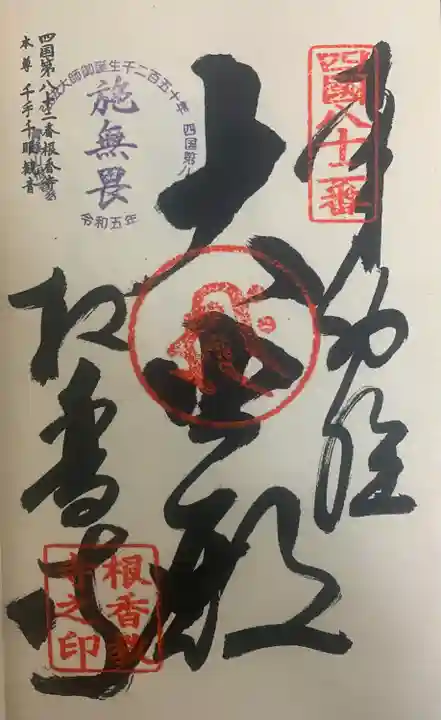 四國八十二番
奉納経
大悲殿
根香寺
施無畏
大師御誕生千二百五十年
四国第八
令和五年
四国第八十二番根香寺
本尊 千手千眼観音
根香
寺之印